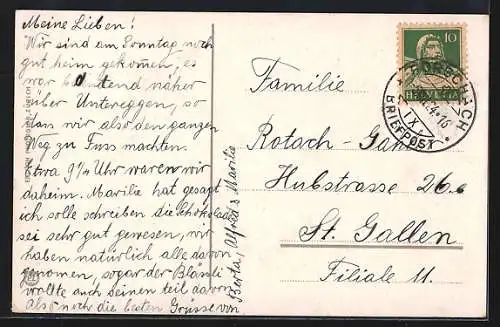 Meine Lieben!
Wir sind am Sonntag noch
gut heim gekommen, es
war bedeutend näher
über Untereggen, so
dass wir also den ganzen
Weg zu Fuss machten.
Etwa 9¼ Uhr waren wir
daheim. Marilie hat gesagt
ich solle schreiben die Schokolade
sei sehr gut gewesen, wir
haben natürlich alle davon
genommen, sogar der Blässli
wollte auch seinen teil davon
Also noch die besten Grüsse von
Berta, Alfred & Marilie
Familie
Rotach-
Hubstrasse 26.
St. Gallen
Filiale 11.
10
HELVETIA
RORSCHACH
IX.
BRIEFPOST